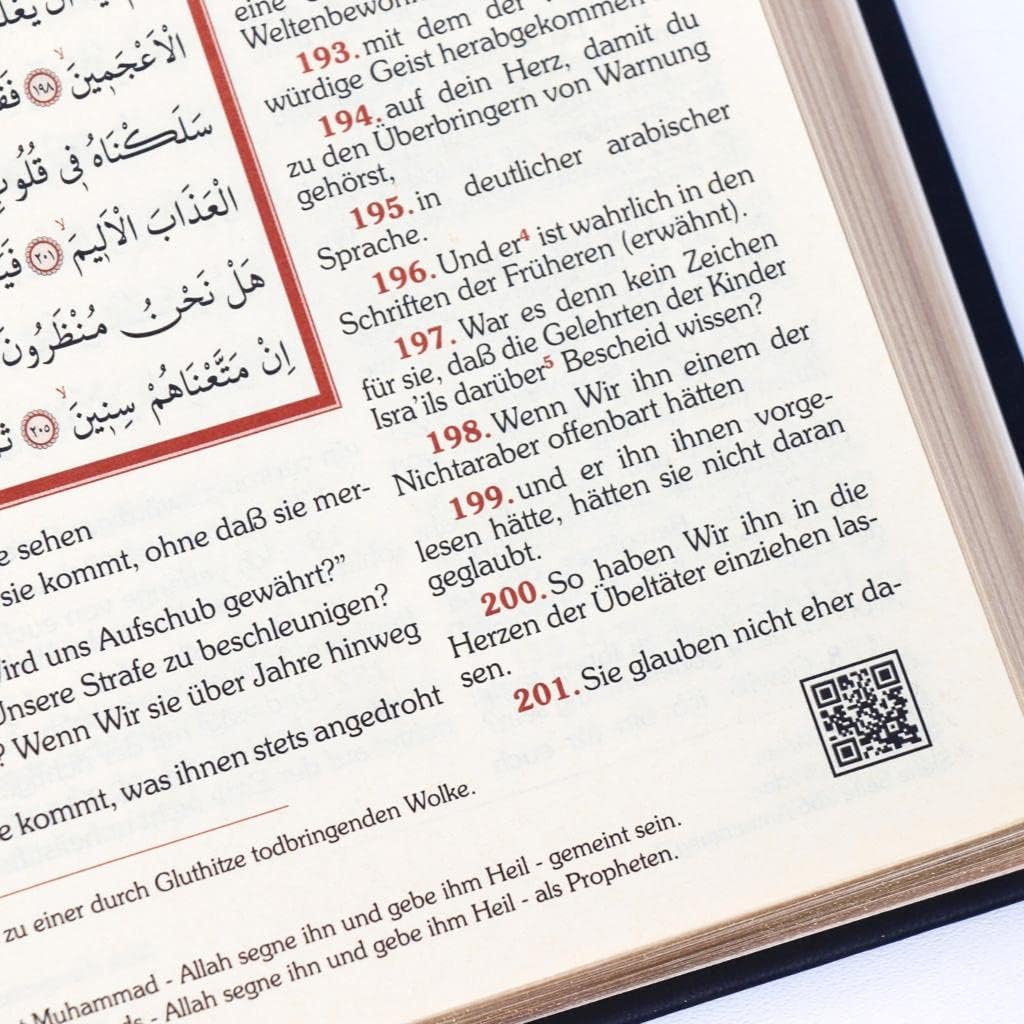 الْاَعْجَمٖينَۙ ١٩٨
سَلَكْنَاهُ فٖى
الْعَذَابَ الْاَلٖيمَۙ ٢٠١
هَلْ نَحْنُ مُنْظَرُونَ
اِنْ مَتَّعْنَاهُمْ سِنٖينَۙ ٢٠٥
eine
193. mit dem der
würdige Geist herabgekommen
194. auf dein Herz, damit du
zu den Überbringern von Warnung
gehörst,
195. in deutlicher arabischer
Sprache.
196. Und er⁴ ist wahrlich in den
Schriften der Früheren (erwähnt).
197. War es denn kein Zeichen
für sie, daß die Gelehrten der Kinder
Isra’ils darüber⁵ Bescheid wissen?
198. Wenn Wir ihn einem der
Nichtaraber offenbart hätten
199. und er ihn ihnen vorge-
lesen hätte, hätten sie nicht daran
geglaubt.
200. So haben Wir ihn in die
Herzen der Übeltäter einziehen las-
sen.
201. Sie glauben nicht eher da-
sehen
sie kommt, ohne daß sie mer-
uns Aufschub gewährt?”
Unsere Strafe zu beschleunigen?
? Wenn Wir sie über Jahre hinweg
kommt, was ihnen stets angedroht
zu einer durch Gluthitze todbringenden Wolke.
Muhammad - Allah segne ihn und gebe ihm Heil - gemeint sein.
- Allah segne ihn und gebe ihm Heil - als Propheten.